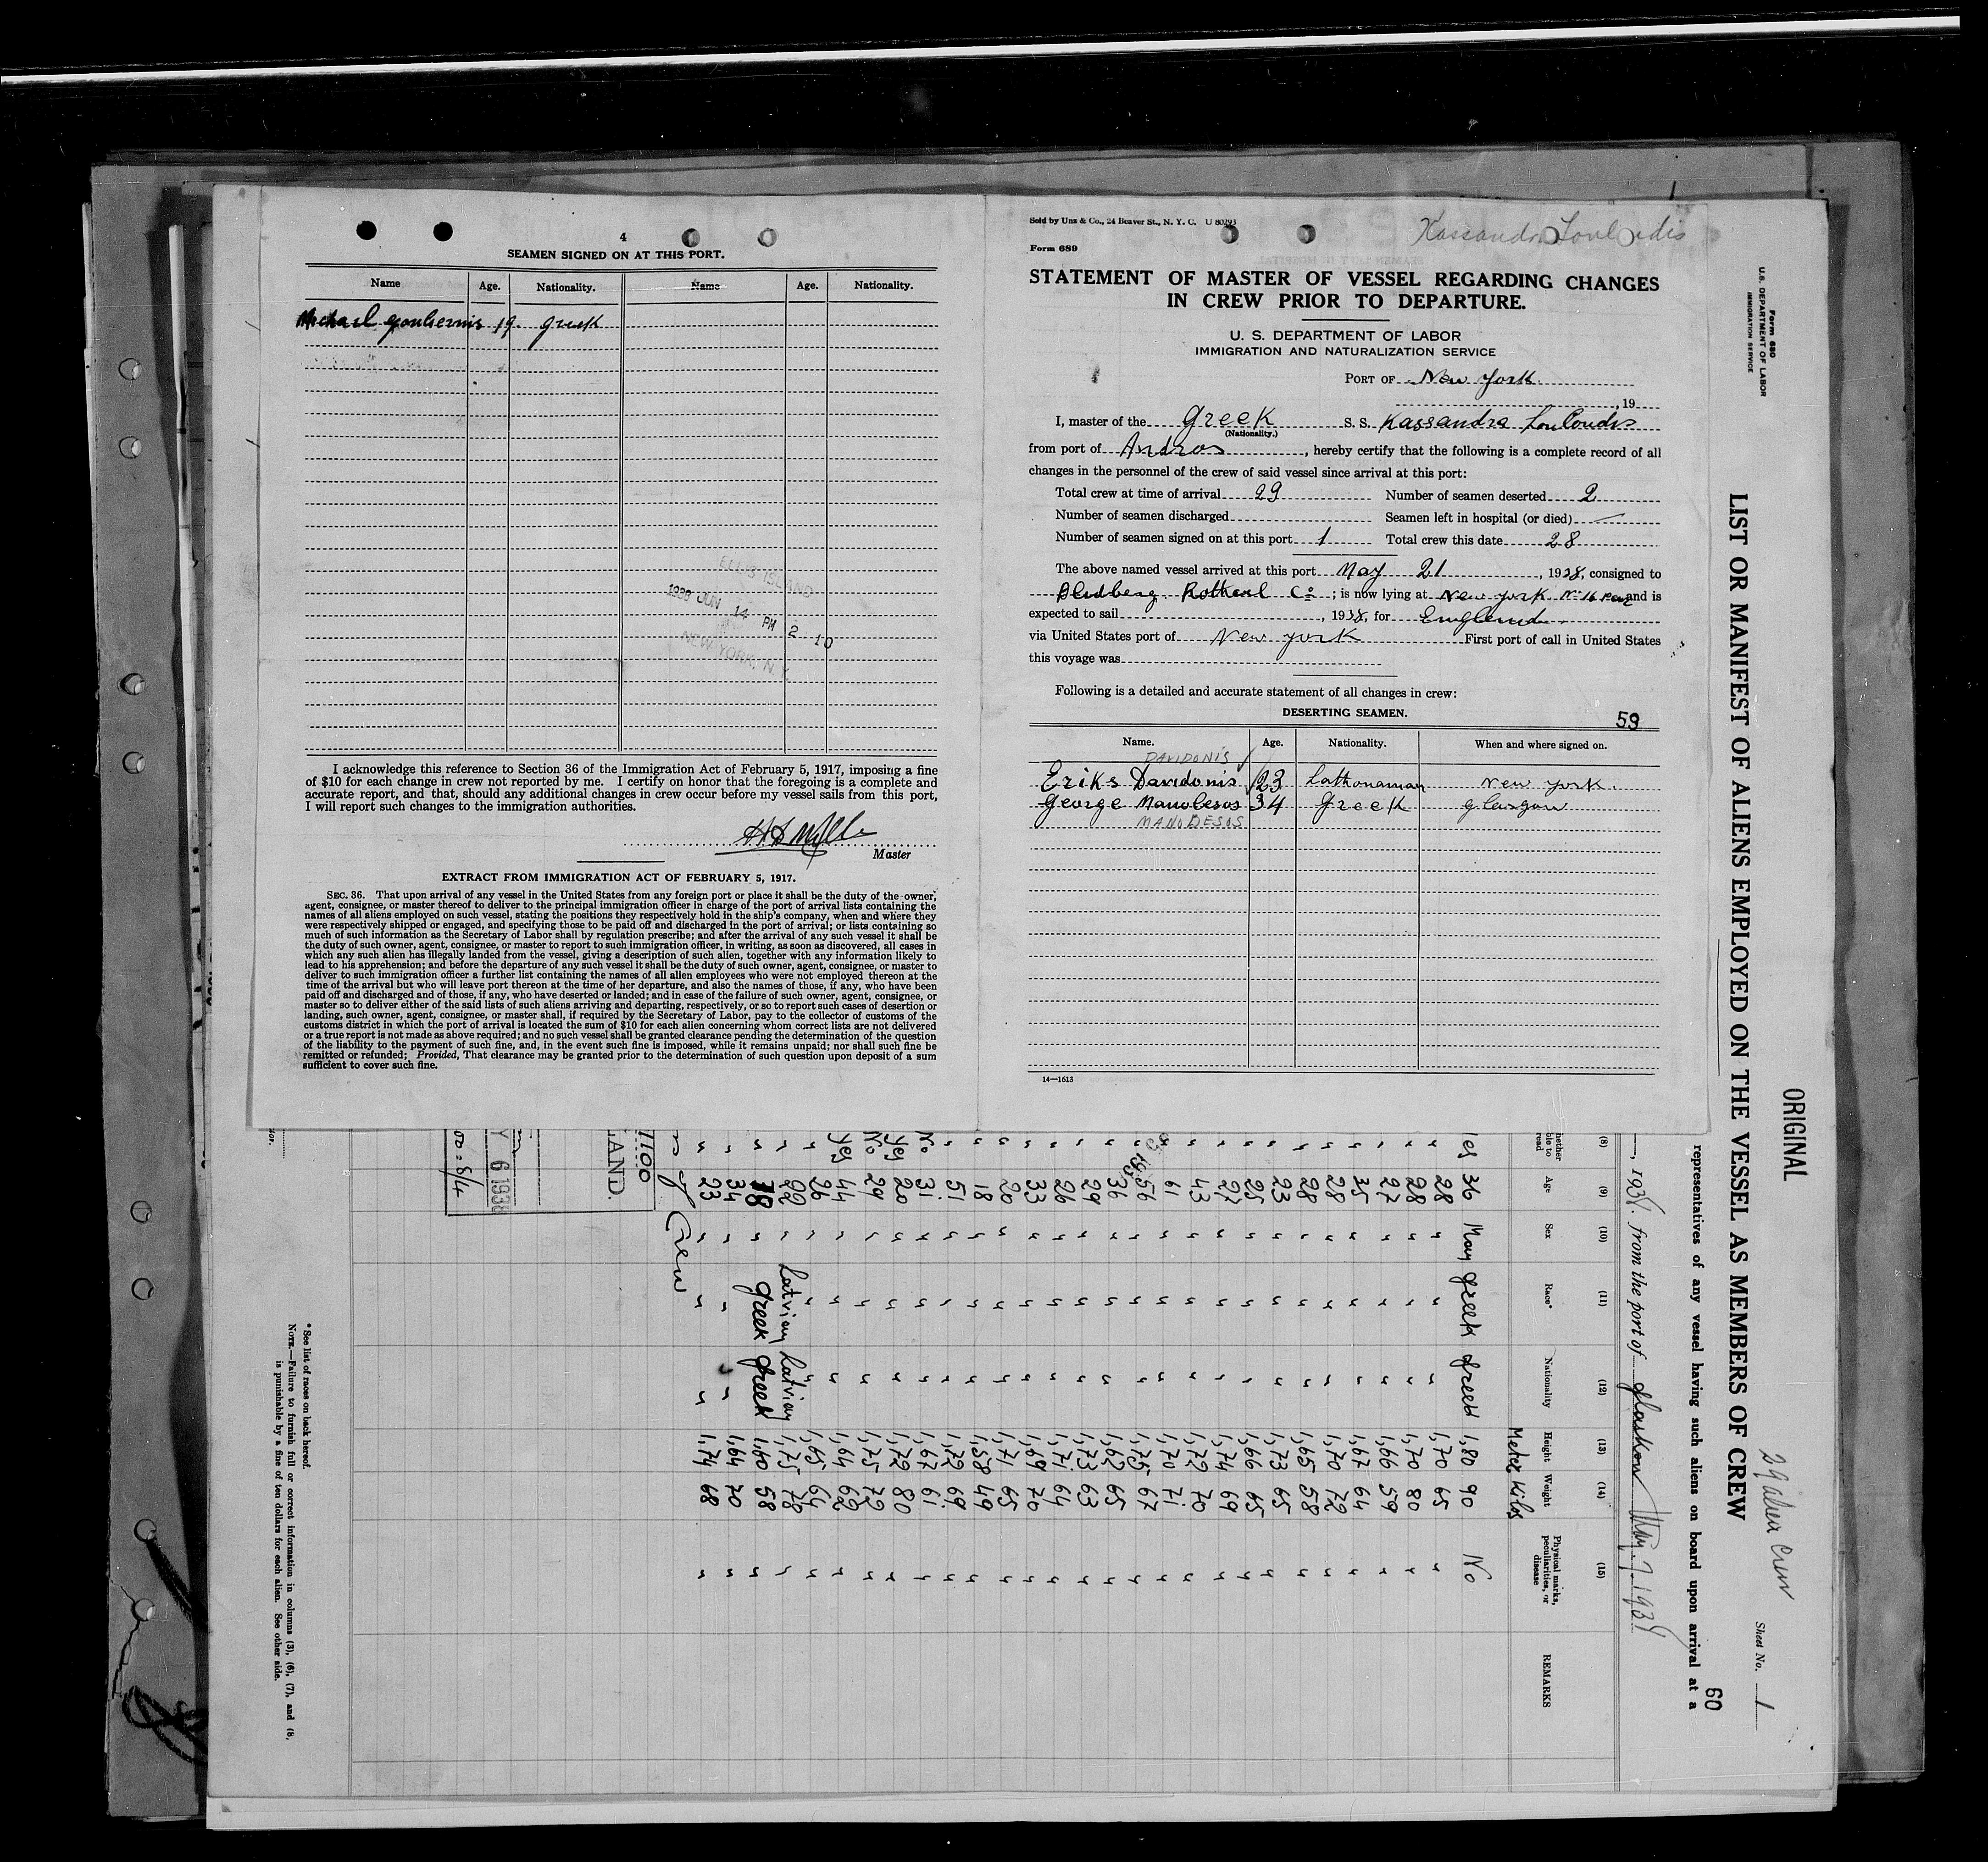 4
SEAMEN SIGNED ON AT THIS PORT.
Name Age. Nationality. Name Age. Nationality.
Michael 19. greek
ELLIS ISLAND
1938 JUN 14 PM 2 10
NEW YORK, N.Y.
I acknowledge this reference to Section 36 of the Immigration Act of February 5, 1917, imposing a fine
of $10 for each change in crew not reported by me. I certify on honor that the foregoing is a complete and
accurate report, and that, should any additional changes in crew occur before my vessel sails from this port,
I will report such changes to the immigration authorities.
Master
EXTRACT FROM IMMIGRATION ACT OF FEBRUARY 5, 1917.
SEC. 36. That upon arrival of any vessel in the United States from any foreign port or place it shall be the duty of the owner,
agent, consignee, or master thereof to deliver to the principal immigration officer in charge of the port of arrival lists containing the
names of all aliens employed on such vessel, stating the positions they respectively hold in the ship's company, when and where they
were respectively shipped or engaged, and specifying those to be paid off and discharged in the port of arrival; or lists containing so
much of such information as the Secretary of Labor shall by regulation prescribe; and after the arrival of any such vessel it shall be
the duty of such owner, agent, consignee, or master to report to such immigration officer, in writing, as soon as discovered, all cases in
which any such alien has illegally landed from the vessel, giving a description of such alien, together with any information likely to
lead to his apprehension; and before the departure of any such vessel it shall be the duty of such owner, agent, consignee, or master to
deliver to such immigration officer a further list containing the names of all alien employees who were not employed thereon at the
time of the arrival but who will leave port thereon at the time of her departure, and also the names of those, if any, who have been
paid off and discharged and of those, if any, who have deserted or landed; and in case of the failure of such owner, agent, consignee, or
master so to deliver either of the said lists of such aliens arriving and departing, respectively, or so to report such cases of desertion or
landing, such owner, agent, consignee, or master shall, if required by the Secretary of Labor, pay to the collector of customs of the
customs district in which the port of arrival is located the sum of $10 for each alien concerning whom correct lists are not delivered
or a true report is not made as above required; and no such vessel shall be granted clearance pending the determination of the question
of the liability to the payment of such fine, and, in the event such fine is imposed, while it remains unpaid; nor shall such fine be
remitted or refunded; Provided, That clearance may be granted prior to the determination of such question upon deposit of a sum
sufficient to cover such fine.
Sold by Unz & Co., 24 Beaver St., N. Y. C. U 80293
Kassandra Louloudis
Form 689
STATEMENT OF MASTER OF VESSEL REGARDING CHANGES
IN CREW PRIOR TO DEPARTURE.
U. S. DEPARTMENT OF LABOR
IMMIGRATION AND NATURALIZATION SERVICE
PORT OF New York
, 19
I, master of the Greek S. S. Kassandra Louloudis
(Nationality.)
from port of Andros, hereby certify that the following is a complete record of all
changes in the personnel of the crew of said vessel since arrival at this port:
Total crew at time of arrival 29 Number of seamen deserted 2
Number of seamen discharged Seamen left in hospital (or died) —
Number of seamen signed on at this port 1 Total crew this date 28
The above named vessel arrived at this port May 21, 1938, consigned to
Co; is now lying at New York No 16 and is
expected to sail , 1938, for England
via United States port of New York First port of call in United States
this voyage was
Following is a detailed and accurate statement of all changes in crew:
DESERTING SEAMEN.
59
Name. Age. Nationality. When and where signed on.
DAVIDONIS
Eriks Davidonis 23 New York.
George Manolesos 34 Greek Glasgow
MANODESOS
14—1613
ORIGINAL
Form 680
U. S. DEPARTMENT OF LABOR
IMMIGRATION SERVICE
29 alien crew
Sheet No. 1
LIST OR MANIFEST OF ALIENS EMPLOYED ON THE VESSEL AS MEMBERS OF CREW
60
representatives of any vessel having such aliens on board upon arrival at a
, 1938, from the port of Glaskow May 7 1938
(8) (9) (10) (11) (12) (13) (14) (15)
Age Sex Race* Nationality Height Weight Physical marks, peculiarities, or disease REMARKS
Meter Kilos
36 Greek Greek 1,80 90 No
28 " " " 1,70 65 "
28 " " " 1,70 80 "
27 " " " 1,66 59 "
35 " " " 1,67 64 "
28 " " " 1,70 72 "
28 " " " 1,65 58 "
23 " " " 1,73 65 "
25 " " " 1,66 65 "
27 " " " 1,74 69 "
43 " " " 1,72 70 "
61 " " " 1,70 71 "
56 " " " 1,75 67 "
36 " " " 1,62 65 "
29 " " " 1,73 63 "
26 " " " 1,71 64 "
33 " " " 1,69 70 "
20 " " " 1,71 65 "
18 " " " 1,58 49 "
51 " " " 1,72 69 "
No 31 " " " 1,67 61 "
Yes 20 " " " 1,72 80 "
No 29 " " " 1,75 72 "
Yes 44 " " " 1,64 62 "
" 26 " " " 1,65 64 "
" 22 " Latvian Latvian 1,75 78 "
" 18 " Greek Greek 1,60 58 "
" 34 " " " 1,64 70 "
" 23 " " " 1,74 68 "
Crew
1100
LAND.
6 1938
* See list of races on back hereof.
NOTE.—Failure to furnish full or correct information in columns (3), (6), (7), and (8,
is punishable by a fine of ten dollars for each alien. See other side.